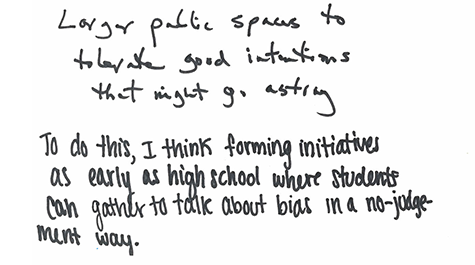 Larger public spaces to
tolerate good intentions
that might go astray
To do this, I think forming initiatives
as early as high school where students
can gather to talk about bias in a no-judge-
ment way.